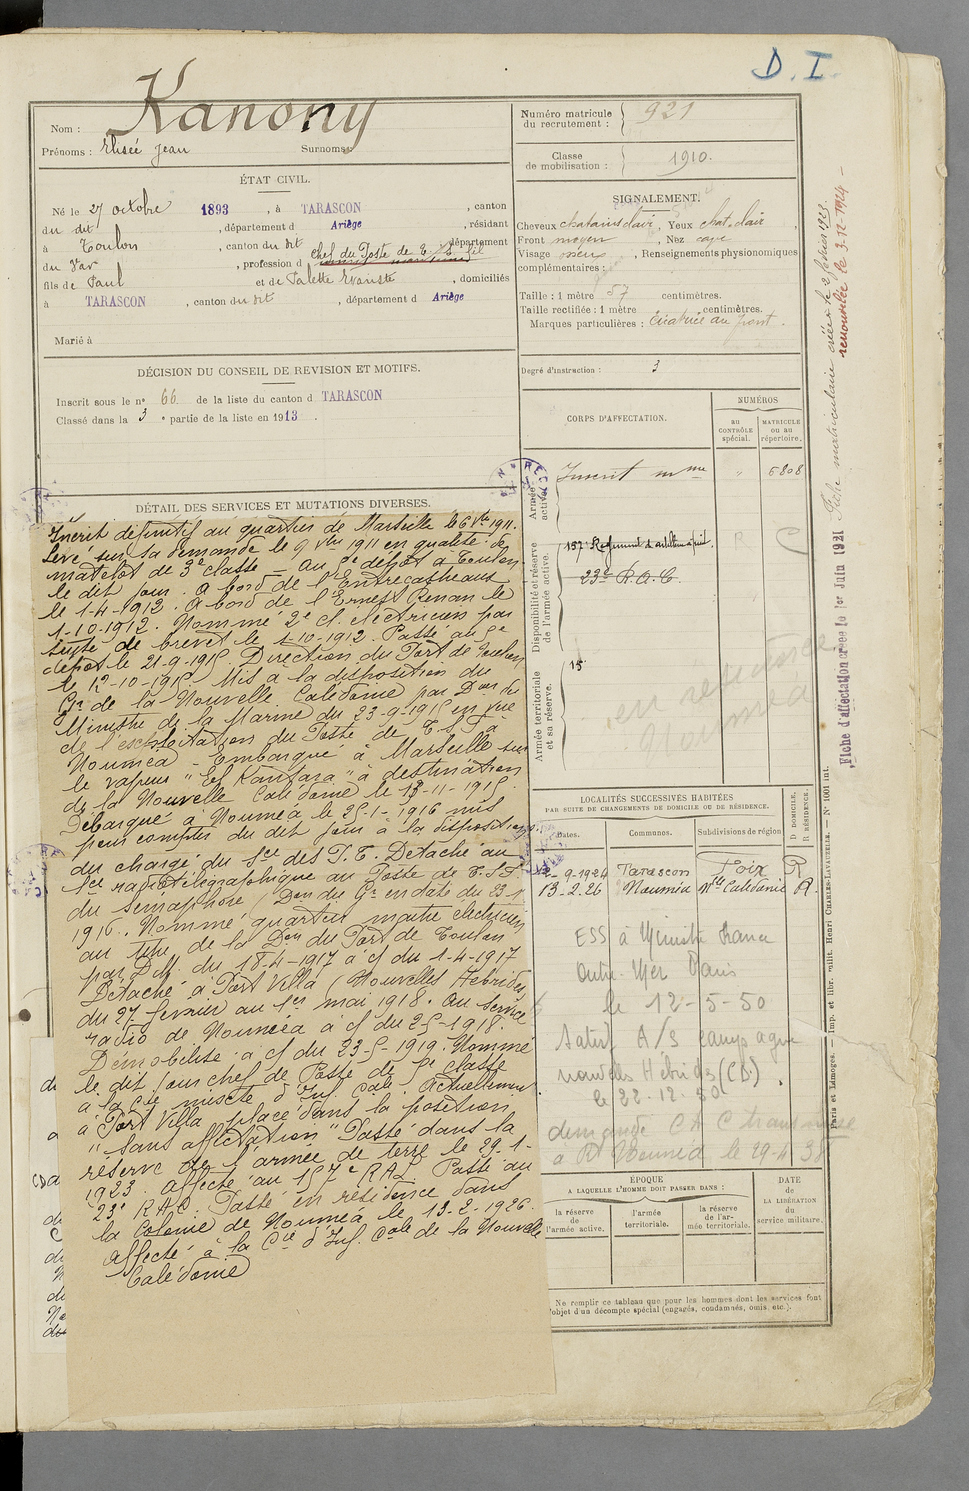 D. I.
Nom : Kanony
Prénoms : Elisée Jean Surnoms :
ÉTAT CIVIL.
Né le 27 octobre 1893, à TARASCON, canton
du dit, département d Ariège, résidant
à Toulon, canton du dit, département
du Var, profession d chef du Poste de T.S.F.
fils de Paul et de Palette Evariste, domiciliés
à TARASCON, canton du dit, département d Ariège
Marié à
DÉCISION DU CONSEIL DE REVISION ET MOTIFS.
Inscrit sous le n° 66 de la liste du canton d TARASCON
Classé dans la 3e partie de la liste en 1913.
DÉTAIL DES SERVICES ET MUTATIONS DIVERSES.
Inscrit définitif au quartier de Marseille le 6 Vbre 1911.
Levé sur sa demande le 9 Vbre 1911 en qualité de
matelot de 3e classe – Au 5e dépôt à Toulon
le dit jour. A bord de l'Entrecasteaux
le 1-4-1912. A bord de l'Ernest Renan le
1-10-1912. Nommé 2e cl. électricien par
suite de brevet le 1-10-1912. Passé au 5e
dépôt le 21-9-1915. Direction du Port de Toulon
le 12-10-1915. Mis à la disposition du
Gr de la Nouvelle Calédonie par Don du
Ministre de la Marine du 23-9-1915 en vue
de l'exploitation du Poste de T.S.F. à
Nouméa – Embarqué à Marseille sur
le vapeur "El Kantara" à destination
de la Nouvelle Calédonie le 13-11-1915.
Débarqué à Nouméa le 25-1-1916 mis
pour compter du dit jour à la disposition
du chargé du Sce des P.T. Détaché au
Sce radiotélégraphique au Poste de T.S.F.
du Sémaphore (Don du Gr en date du 23-1
1916. Nommé quartier maître électricien
au titre de la Don du Port de Toulon
par D.M. du 18-4-1917 à c/ du 1-4-1917
Détaché à Port Villa (Nouvelles Hébrides
du 27 février au 1er mai 1918. Au service
radio de Nouméa à c/ du 2-5-1918.
Démobilisé à c/ du 23-5-1919. Nommé
le dit jour chef de Poste de 5e classe
à la Cie mixte d'Inf. Cale. Actuellement
à Port Villa, placé dans la position
"sans affectation" Passé dans la
réserve de l'armée de terre le 29-1-
1923. Affecté au 157e RAP. Passé au
23e RAC. Passé en résidence dans
la Colonie de Nouméa le 13-2-1926.
Affecté à la Cie d'Inf. Cale de la Nouvelle
Calédonie
Numéro matricule du recrutement : 921
Classe de mobilisation : 1910.
SIGNALEMENT.
Cheveux chatains clair, Yeux chat. clair,
Front moyen, Nez cave
Visage, Renseignements physionomiques
complémentaires :
Taille : 1 mètre 57 centimètres.
Taille rectifiée : 1 mètre centimètres.
Marques particulières : Cicatrice au front.
Degré d'instruction : 3
CORPS D'AFFECTATION.
NUMÉROS
au CONTRÔLE spécial.
MATRICULE ou au répertoire.
Armée active.
Inscrit mme " 6808
Disponibilité et réserve de l'armée active.
157e Régiment d'artillerie à pied.
23e R.A.C.
Armée territoriale et sa réserve.
15
en résidence
Nouméa
LOCALITÉS SUCCESSIVES HABITÉES
PAR SUITE DE CHANGEMENTS DE DOMICILE OU DE RÉSIDENCE.
Dates. Communes. Subdivisions de région D DOMICILE, R RÉSIDENCE.
-9-1924 Tarascon Foix R
13.2.26 Nouméa Nlle Calédonie R.
ESS à Ministre France
Outre-Mer Paris
le 12-5-50
A/S
nouvelles Hébrides (CD).
le 22.12.50
demande
à Nouméa le 29-4 38
ÉPOQUE
A LAQUELLE L'HOMME DOIT PASSER DANS :
la réserve de l'armée active.
l'armée territoriale.
la réserve de l'armée territoriale.
DATE de LA LIBÉRATION du service militaire.
Ne remplir ce tableau que pour les hommes dont les services font
l'objet d'un décompte spécial (engagés, condamnés, omis, etc.).
Fiche matriculaire créée le 2 février 1923.
renouvelée le 3-12-1924 –
Fiche d'affectation créée le 1er Juin 1931
Paris et Limoges. — Imp. et libr. milit. Henri CHARLES-LAVAUZELLE. — N° 1001 int.